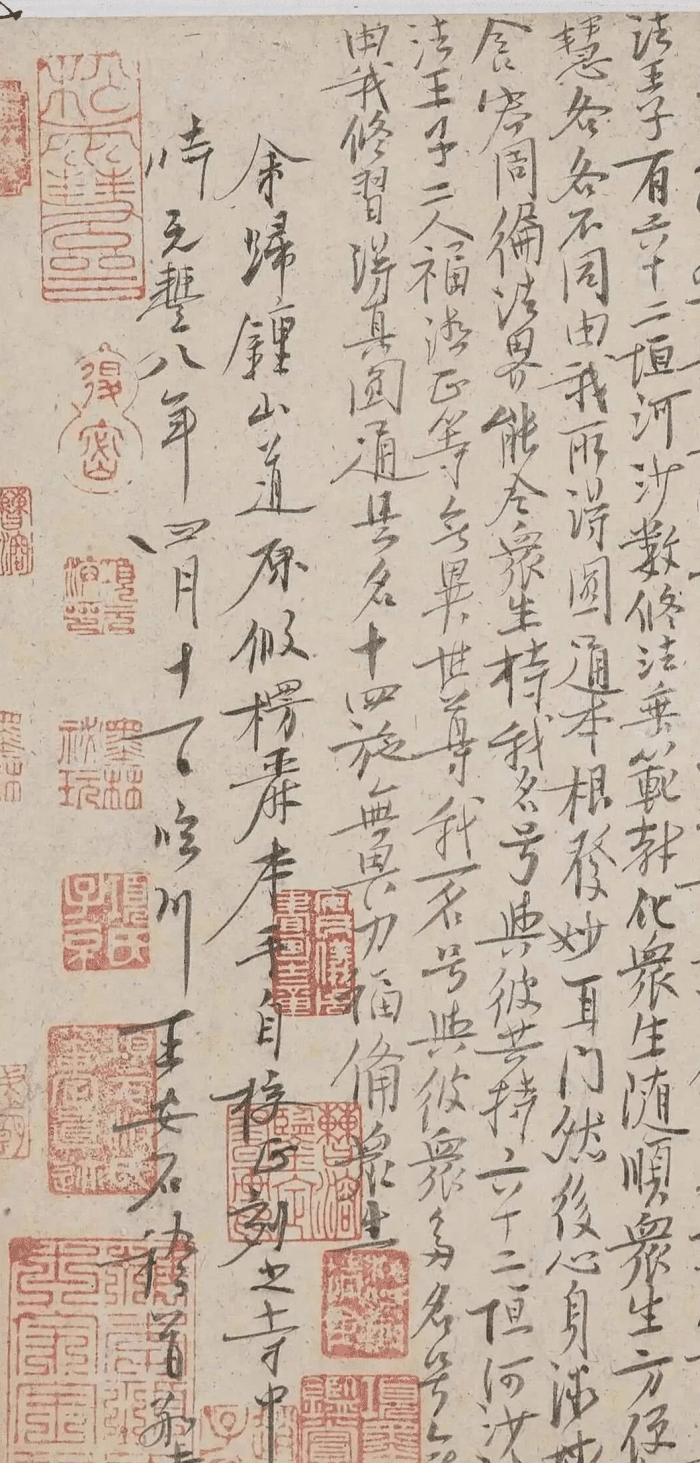 法王子有六十二恒河沙數修法垂範教化衆生隨順衆生方便
慧各各不同由我所得圓通本根發妙耳門然後心身微妙
含容周徧法界能令衆生持我名号與彼共持六十二恒河沙
法王子二人福德正等無異世尊我一名号與彼衆多名号
由我修習得真圓通是名十四施無畏力福備衆生
余歸鍾山道原假楞嚴本手自校正刻之寺中
時元豐八年四月十一日臨川王安石稽首敬
松雪齋圖書印
項元汴印
墨林祕玩
項氏子京